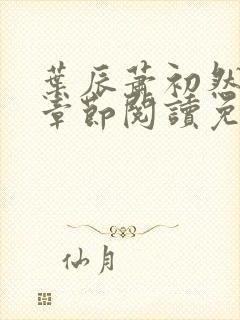 葉辰蕭初然
章節閱讀免
仙月